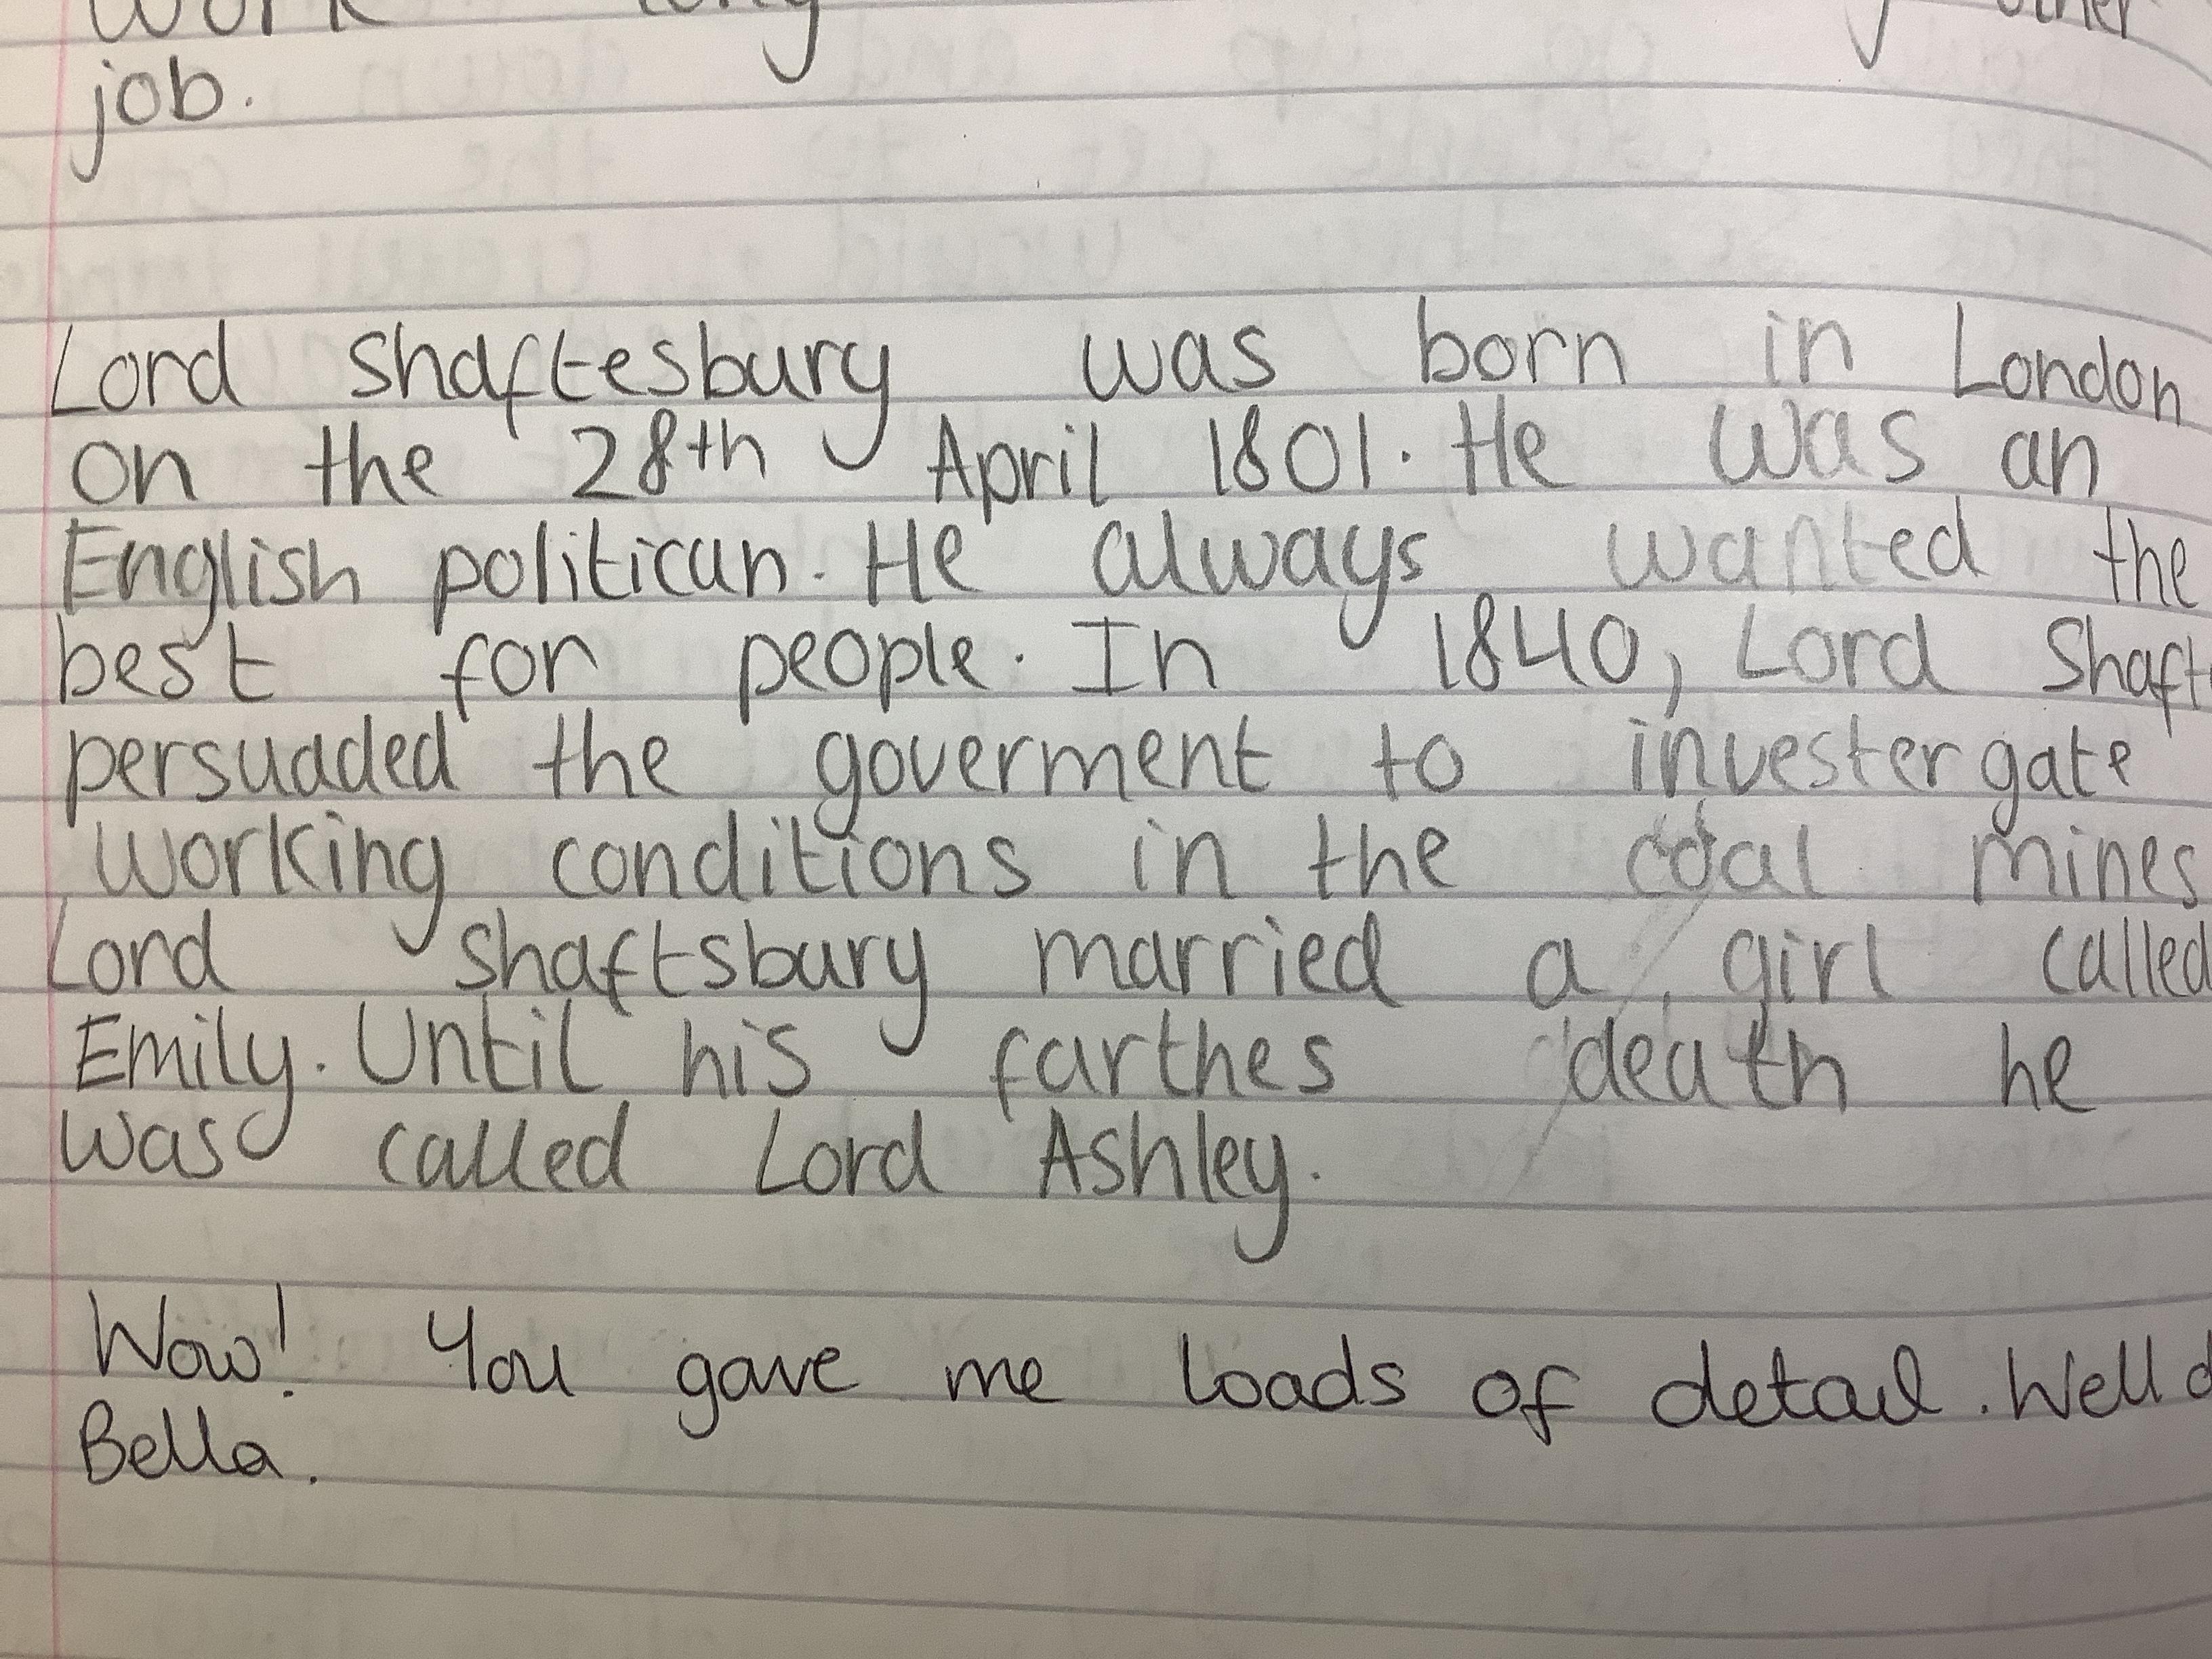 work long other
job.
Lord Shaftesbury was born in London
on the 28th April 1801. He was an
English politican. He always wanted the
best for people. In 1840, Lord Shaft
persuaded the goverment to investergate
working conditions in the coal mines
Lord Shaftsbury married a girl called
Emily. Until his farthes death he
was called Lord Ashley.
Wow! You gave me loads of detail. Well d
Bella.